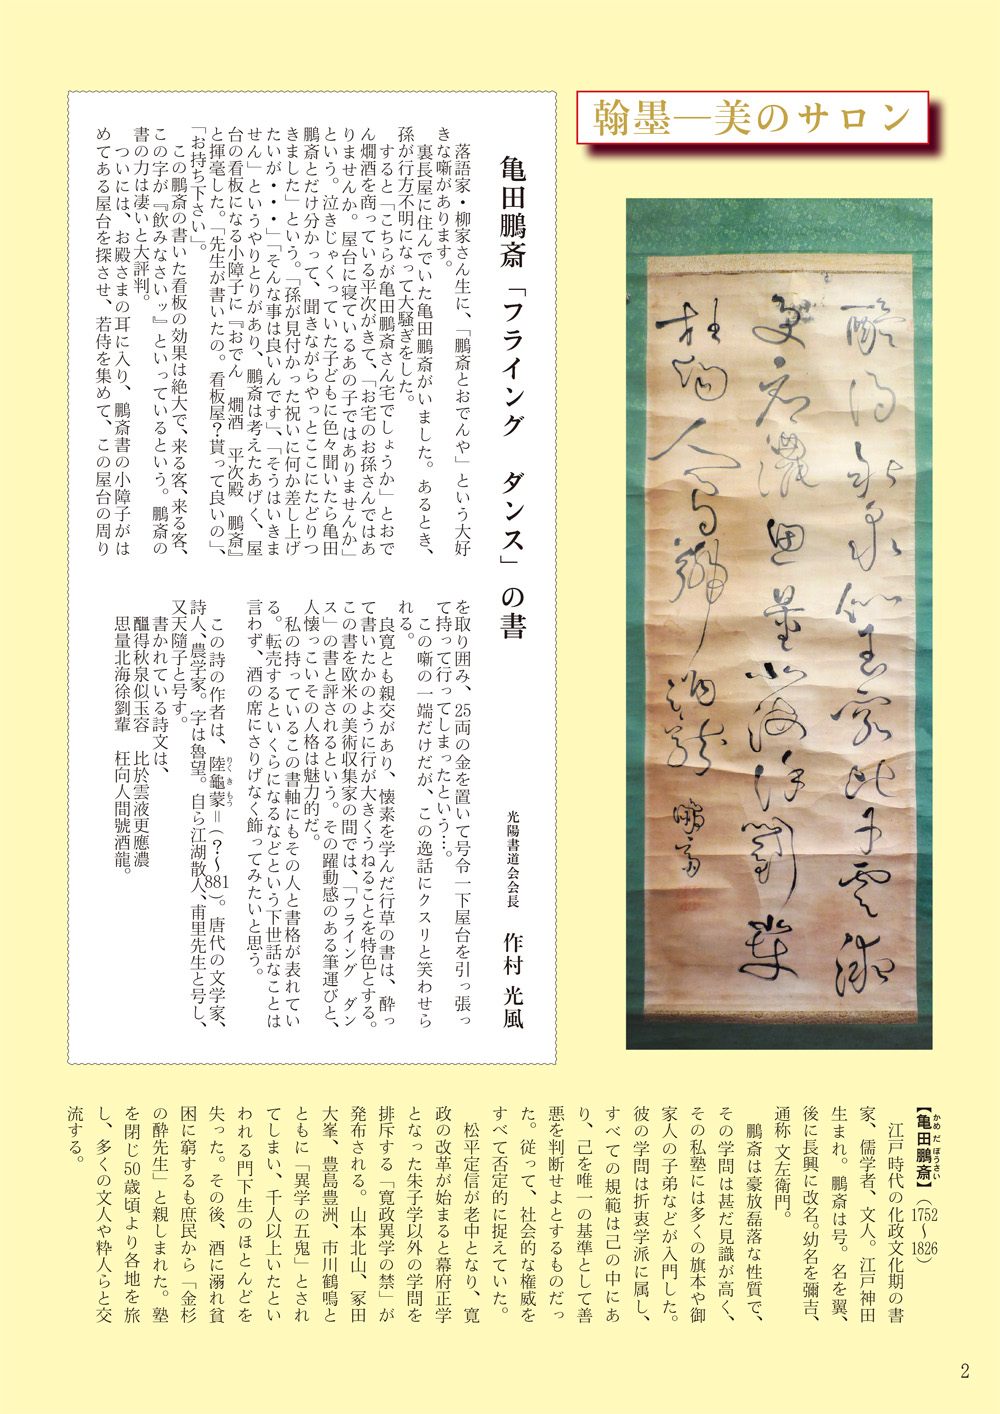 翰墨―美のサロン
亀田鵬斎「フライング　ダンス」の書
光陽書道会会長　作村 光風
落語家・柳家さん生に、「鵬斎とおでんや」という大好
きな噺があります。
裏長屋に住んでいた亀田鵬斎がいました。あるとき、
孫が行方不明になって大騒ぎをした。
すると「こちらが亀田鵬斎さん宅でしょうか」とおで
ん燗酒を商っている平次がきて、「お宅のお孫さんではあ
りませんか。屋台に寝ているあの子ではありませんか」
という。泣きじゃくっていた子どもに色々聞いたら亀田
鵬斎とだけ分かって、聞きながらやっとここにたどりつ
きました」という。「孫が見付かった祝いに何か差し上げ
たいが・・・」「そんな事は良いんです」、「そうはいきま
せん」というやりとりがあり、鵬斎は考えたあげく、屋
台の看板になる小障子に『おでん　燗酒　平次殿　鵬斎』
と揮毫した。「先生が書いたの。看板屋？貰って良いの」、
「お持ち下さい」。
この鵬斎の書いた看板の効果は絶大で、来る客、来る客、
この字が『飲みなさいッ』といっているという。鵬斎の
書の力は凄いと大評判。
ついには、お殿さまの耳に入り、鵬斎書の小障子がは
めてある屋台を探させ、若侍を集めて、この屋台の周り
を取り囲み、25両の金を置いて号令一下屋台を引っ張っ
て持って行ってしまったという…。
この噺の一端だけだが、この逸話にクスリと笑わせら
れる。
良寛とも親交があり、懐素を学んだ行草の書は、酔っ
て書いたかのように行が大きくうねることを特色とする。
この書を欧米の美術収集家の間では、「フライング　ダン
ス」の書と評されるという。その躍動感のある筆運びと、
人懐っこいその人格は魅力的だ。
私の持っているこの書軸にもその人と書格が表れてい
る。転売するといくらになるなどという下世話なことは
言わず、酒の席にさりげなく飾ってみたいと思う。
この詩の作者は、陸龜蒙＝（？〜881）。唐代の文学家、
りくきもう
詩人、農学家。字は魯望。自ら江湖散人、甫里先生と号し、
又天隨子と号す。
書かれている詩文は、
醞得秋泉似玉容　比於雲液更應濃
思量北海徐劉輩　枉向人間號酒龍。
【亀田鵬斎】（1752〜1826）
かめだぼうさい
江戸時代の化政文化期の書
家、儒学者、文人。江戸神田
生まれ。鵬斎は号。名を翼、
後に長興に改名。幼名を彌吉、
通称 文左衛門。
鵬斎は豪放磊落な性質で、
その学問は甚だ見識が高く、
その私塾には多くの旗本や御
家人の子弟などが入門した。
彼の学問は折衷学派に属し、
すべての規範は己の中にあ
り、己を唯一の基準として善
悪を判断せよとするものだっ
た。従って、社会的な権威を
すべて否定的に捉えていた。
松平定信が老中となり、寛
政の改革が始まると幕府正学
となった朱子学以外の学問を
排斥する「寛政異学の禁」が
発布される。山本北山、冢田
大峯、豊島豊洲、市川鶴鳴と
ともに「異学の五鬼」とされ
てしまい、千人以上いたとい
われる門下生のほとんどを
失った。その後、酒に溺れ貧
困に窮するも庶民から「金杉
の酔先生」と親しまれた。塾
を閉じ50歳頃より各地を旅
し、多くの文人や粋人らと交
流する。
2